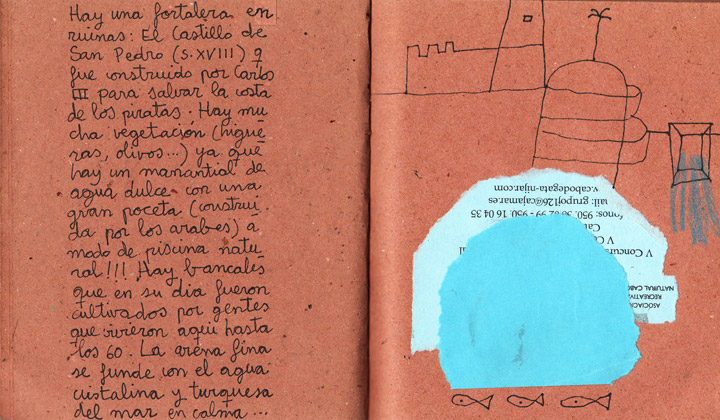 Hay una fortaleza en
ruinas: El Castillo de
San Pedro (s. XVIII) q
fue construido por Carlos
III para salvar la costa
de los piratas. Hay mu
cha vegetación (higue
ras, olivos...) ya que
hay un manantial de
agua dulce con una
gran poceta (construi
da por los arabes) a
modo de piscina natu
ral!!! Hay bancales
que en su día fueron
cultivados por gentes
que vivieron aquí hasta
los 60. La arena fina
se funde con el agua
cristalina y turquesa
del mar en calma...
v.cabodegata-nijar.com
ail: grupoj126@cajamar.es
fonos: 950. 38 02 99 - 950. 16 04 35
V C
V Concurs
ASOCIACI
RECREATIVA
NATURAL CABO